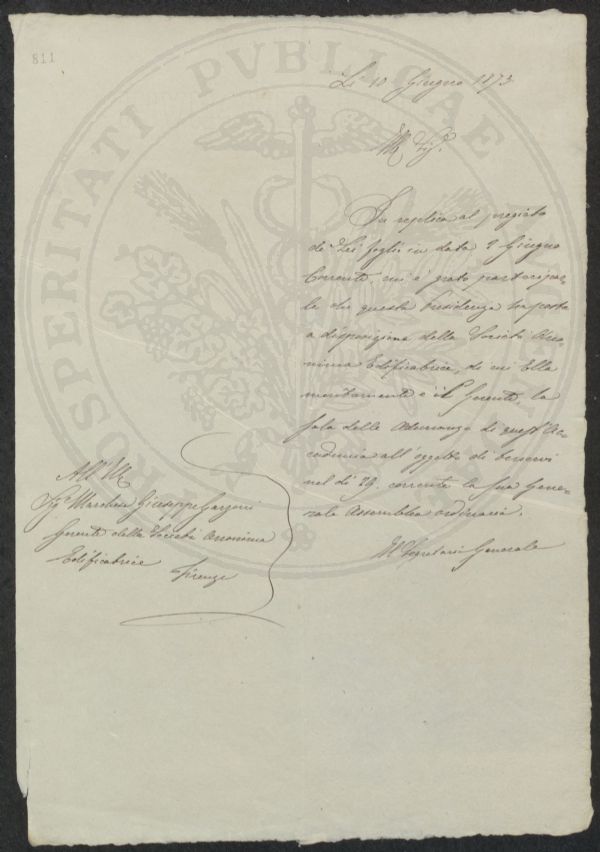 811
PROSPERITATI PVBLICAE AVGENDAE
Li 10 Giugno 1873
In replica al pregiato
di Lei foglio in data 9 Giugno
Corrente, mi è grato partecipar-
le che questa Presidenza ha posto
a disposizione della Società Ano-
nima Edificatrice, di cui Ella
meritamente è il Gerente, la
sala delle Adunanze di quest'Ac-
cademia all'oggetto di tenervi
nel dì 29 corrente la sua Gene-
rale Assemblea ordinaria.
Il Segretario Generale
All'Ill
Sigr Marchese Giuseppe Garzoni
Gerente della Società Anonima
Edificatrice
Firenze